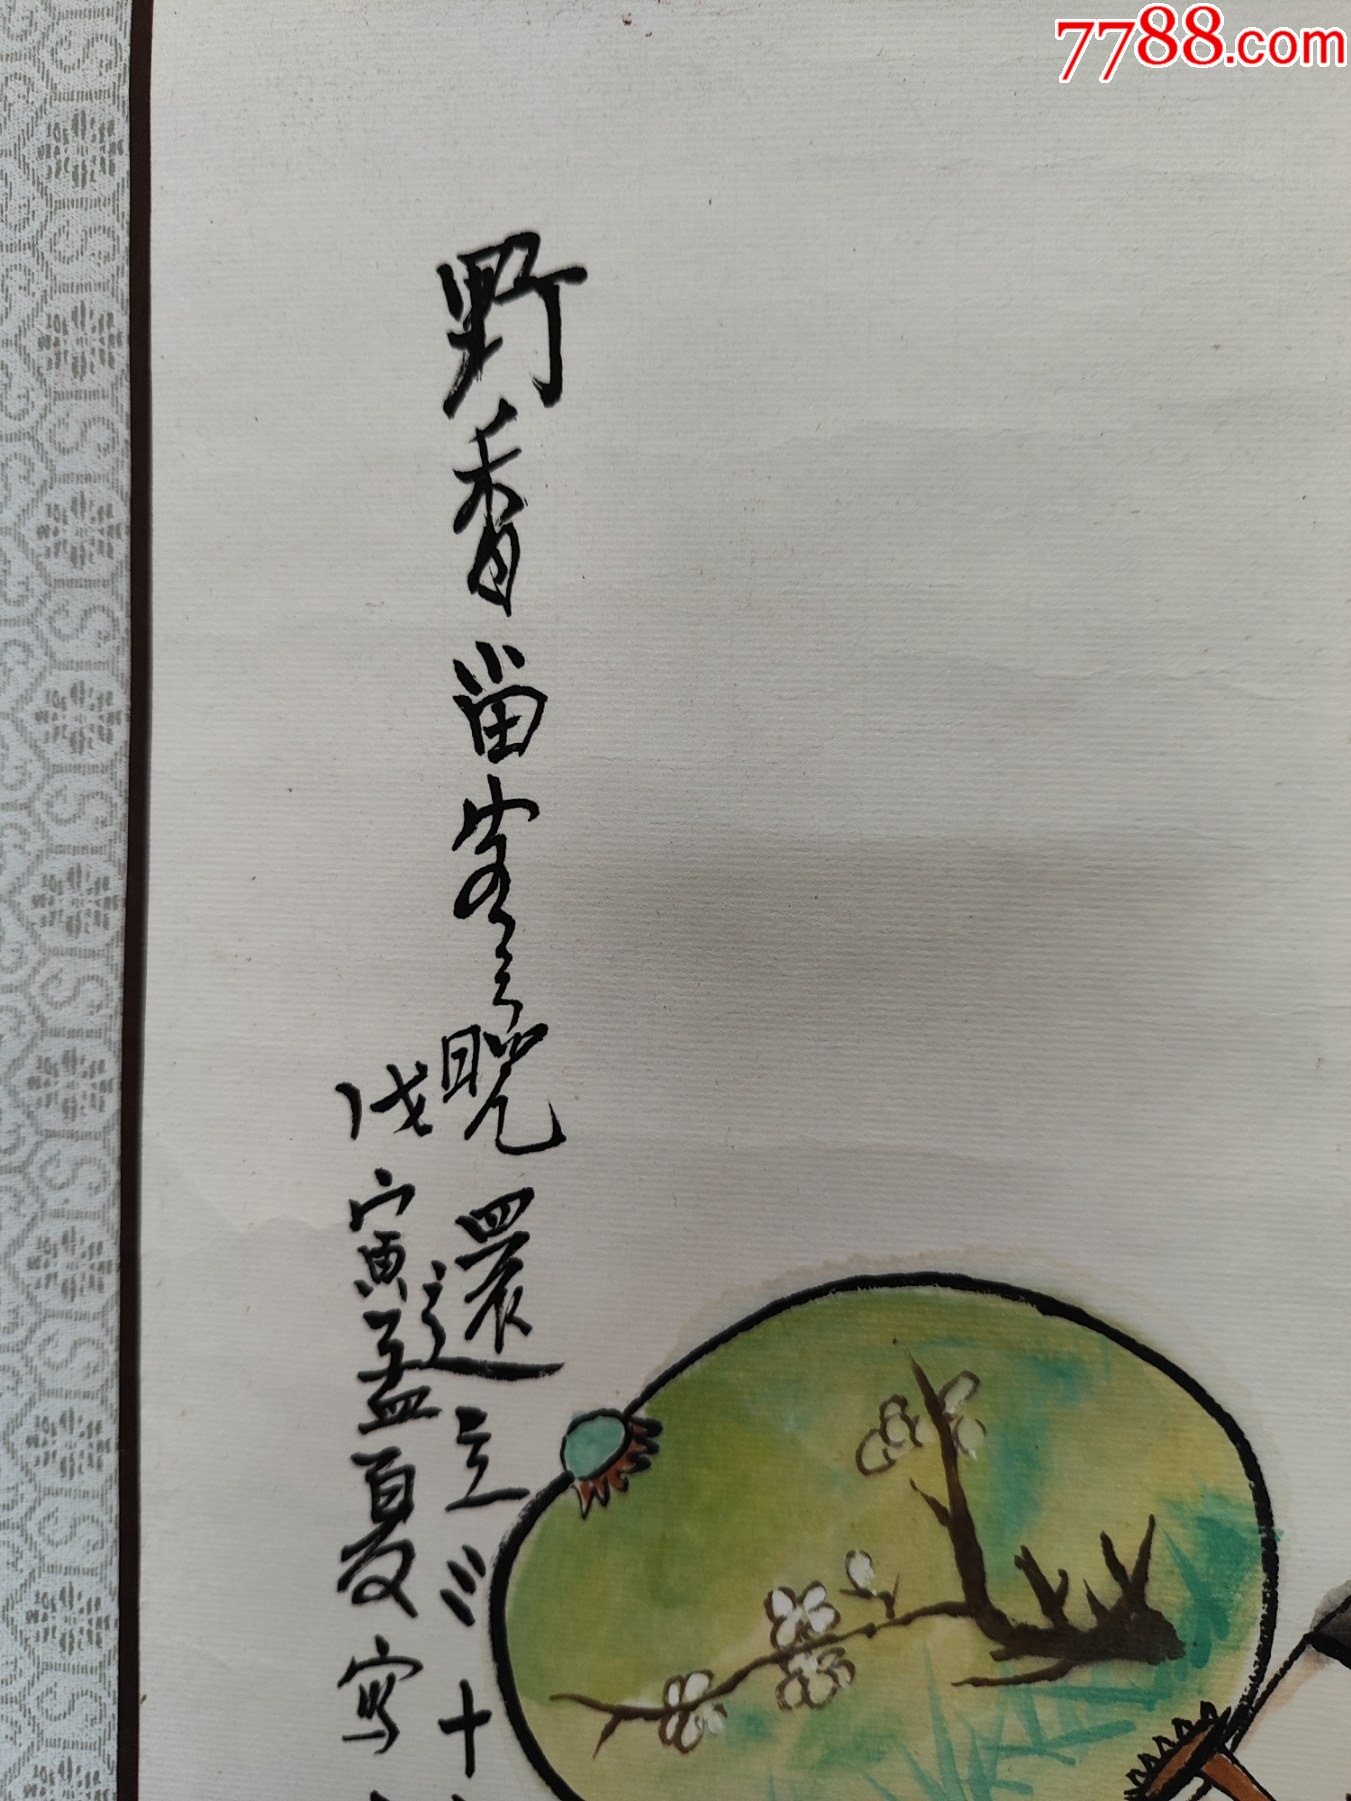 7788.com
野香留客晚還立三十
戊寅孟夏写